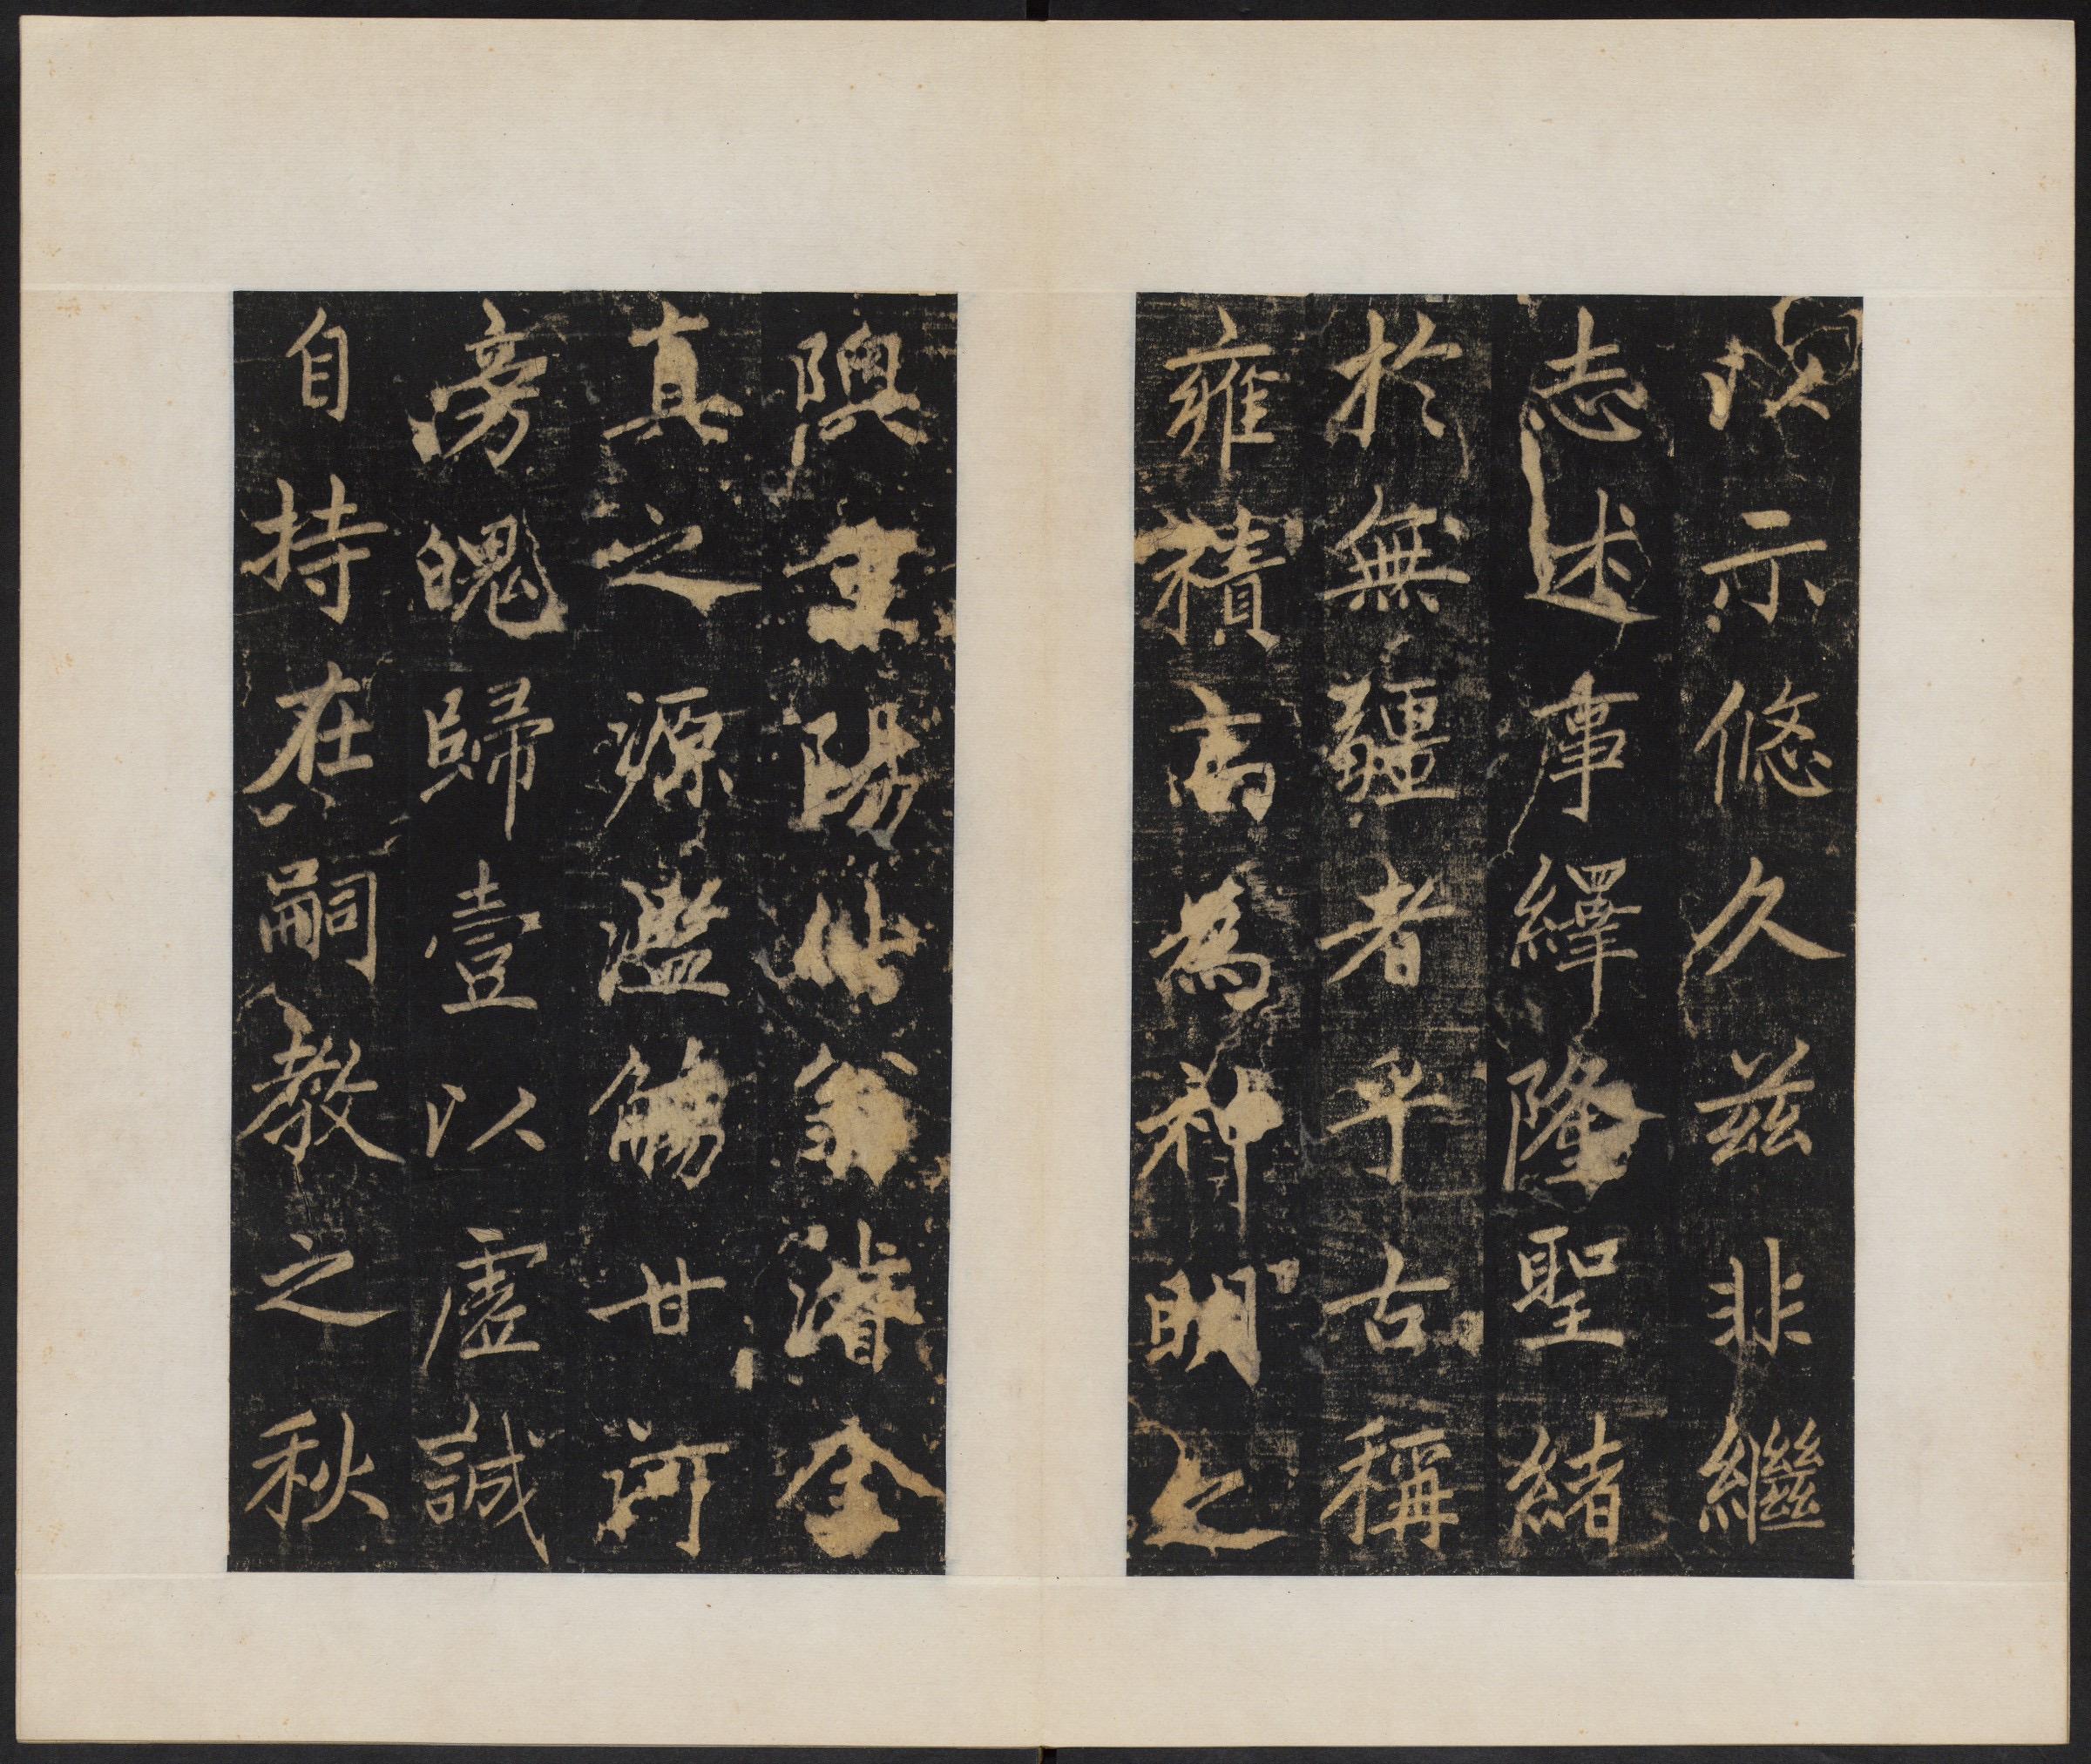 以示悠久茲非繼
志述事繹隆聖緒
於無疆者乎古稱
雍積高為神明之
隩重陽仙翁濬全
真之源濫觴甘河
旁魄歸壹以虛誠
自持在嗣教之秋